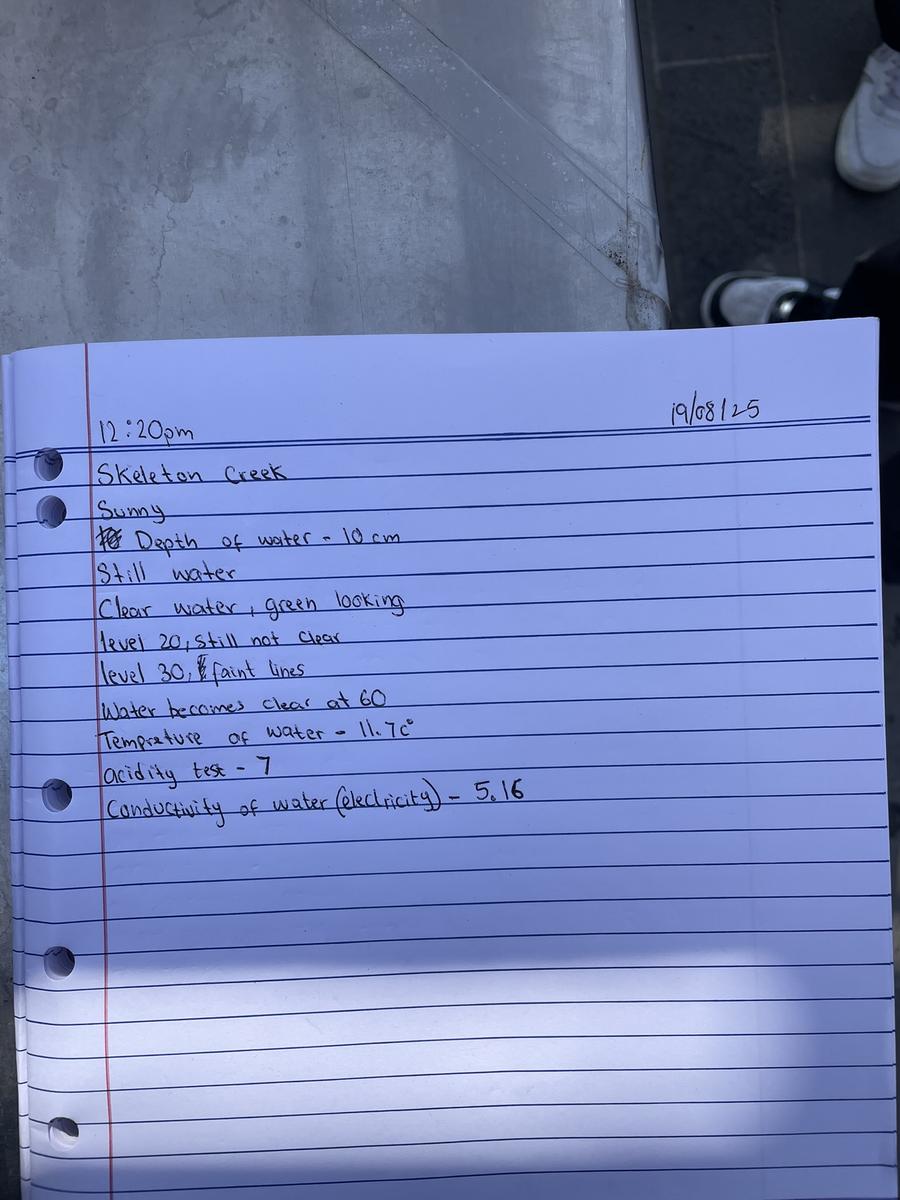 12:20pm
19/08/25
Skeleton Creek
Sunny
Depth of water - 10 cm
Still water
Clear water, green looking
level 20, still not clear
level 30, faint lines
Water becomes clear at 60
Temprature of water - 11.7c°
acidity test - 7
Conductivity of water (electricity) - 5.16